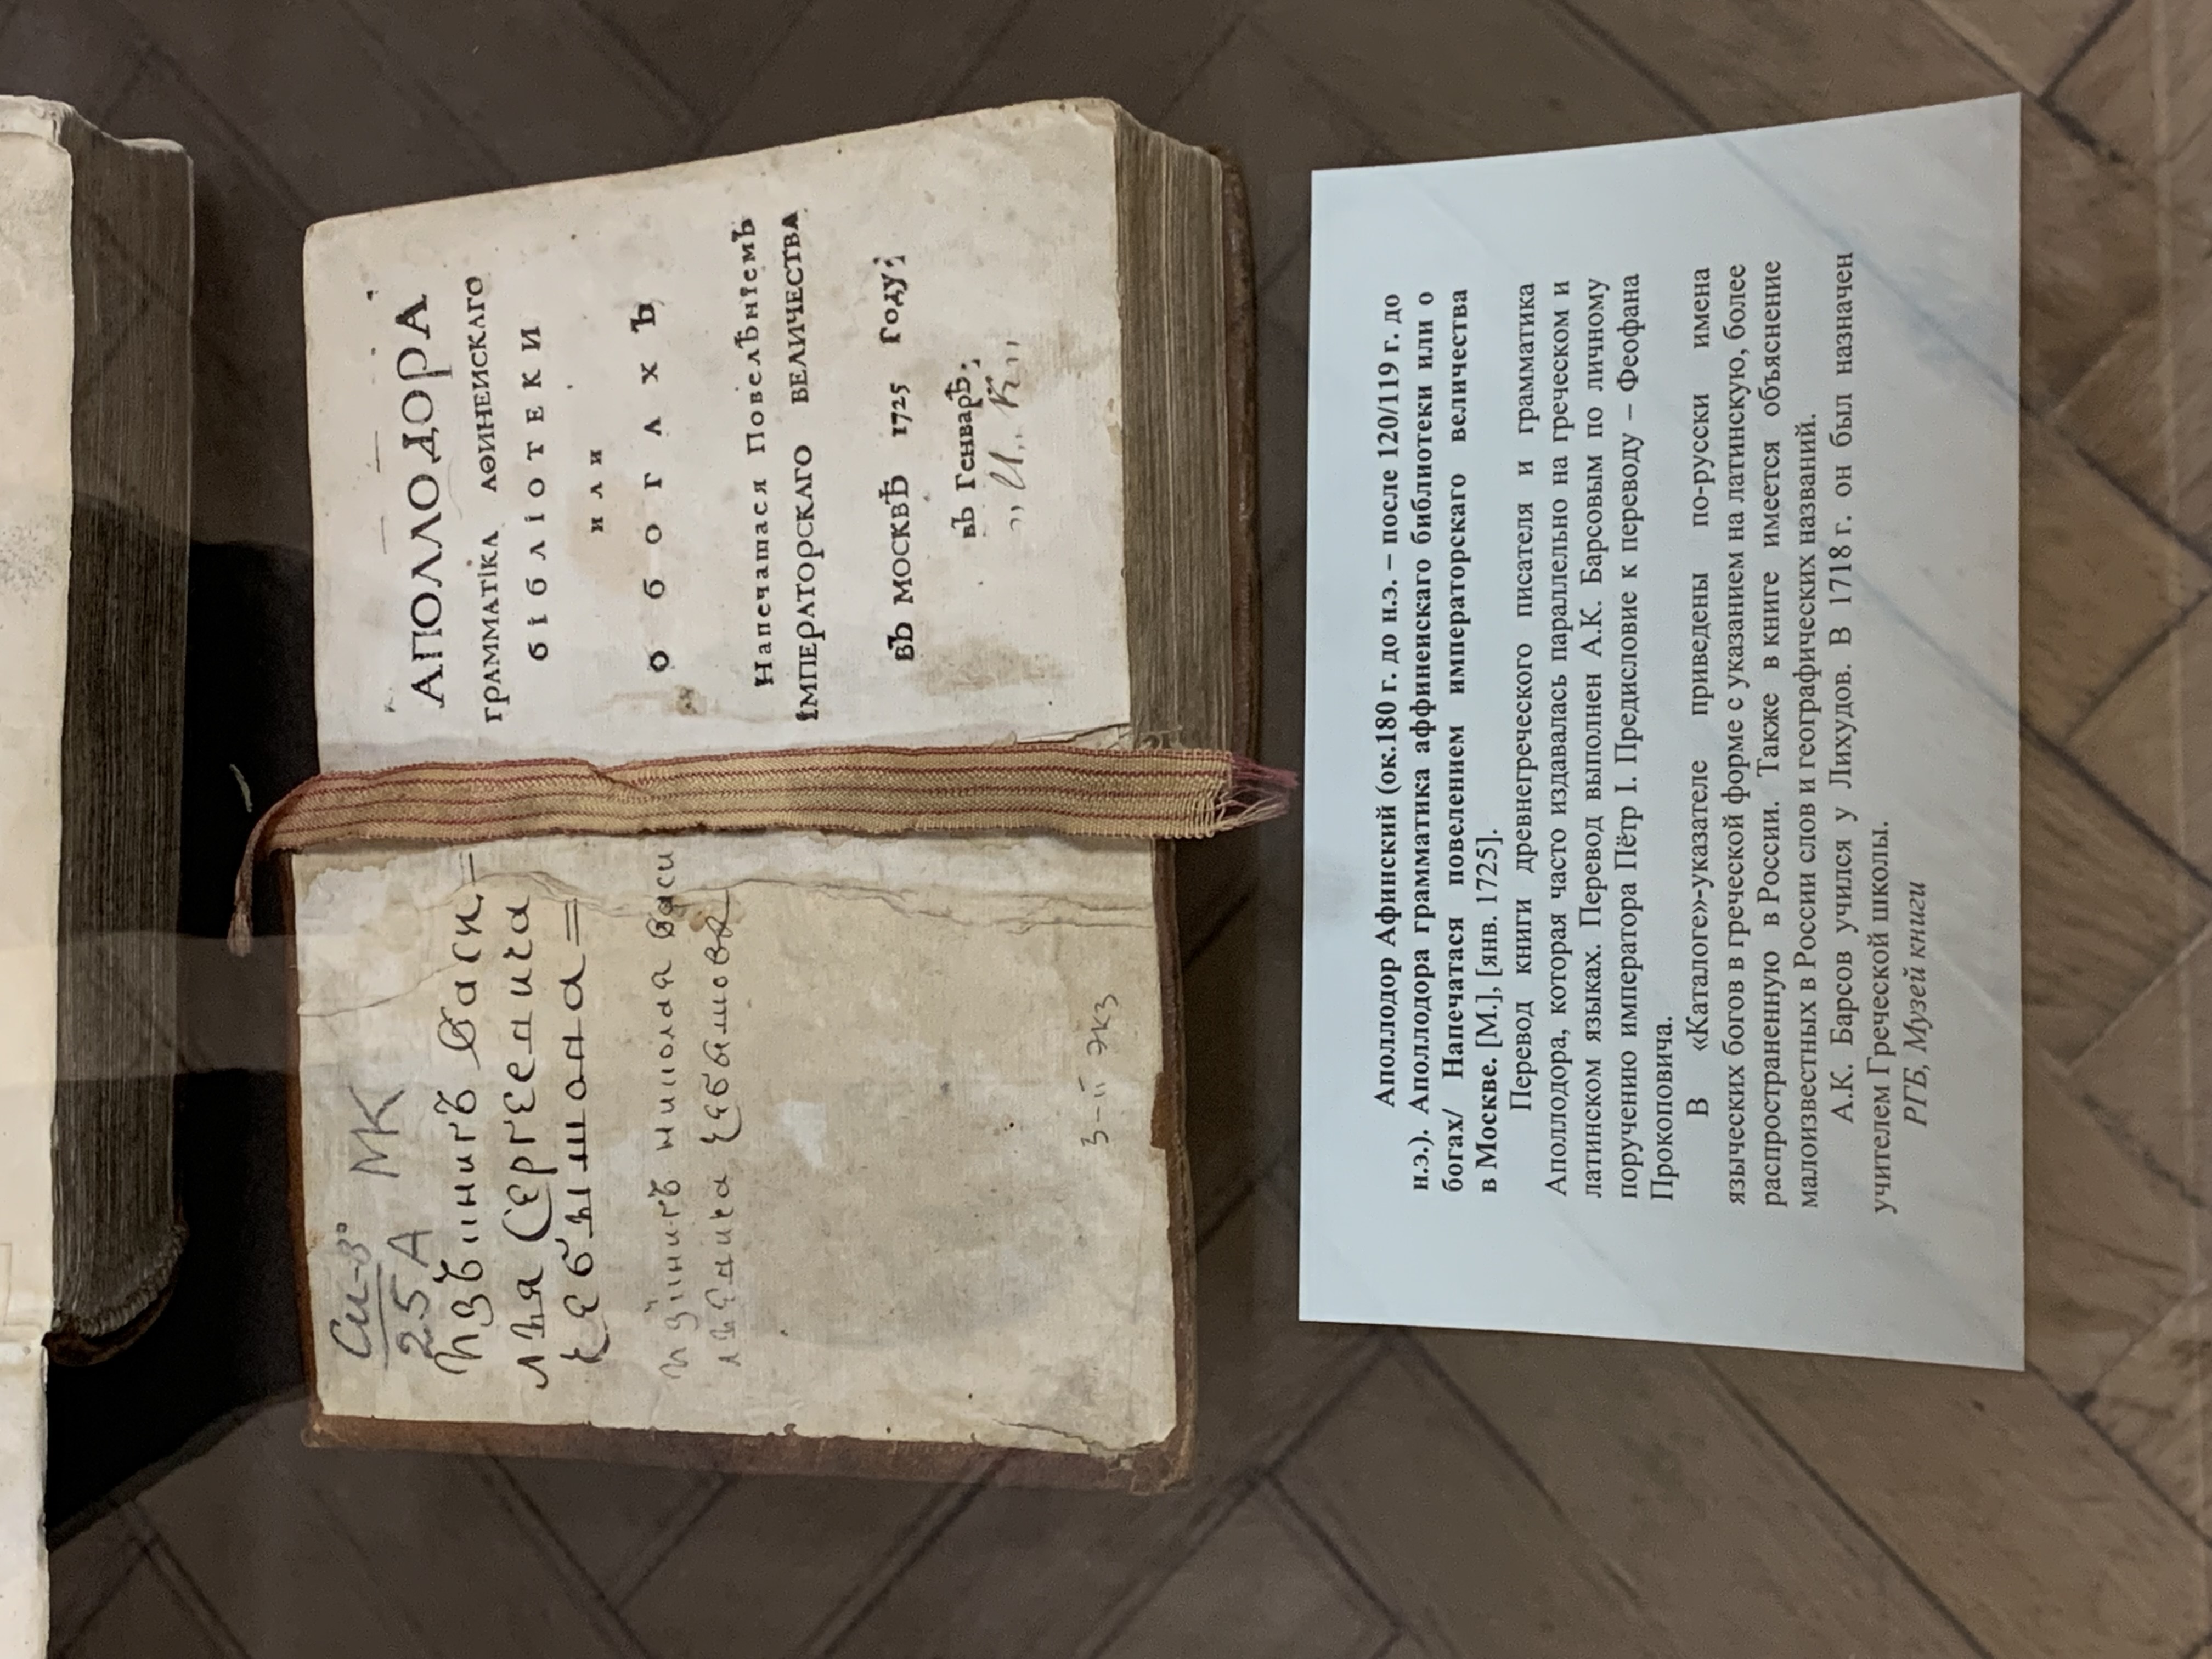 Си-8°
25 А МК
АПОЛЛОДОРА
ГРАММАТІКА АѲИНЕИСКАГО
БІБЛІОТЕКИ
ИЛИ
О БОГАХЪ
Напечатася Повелѣніемъ
ІМПЕРАТОРСКАГО ВЕЛИЧЕСТВА
ВЪ МОСКВѢ 1725 году;
вЪ Генварѣ.
3-й экз
Аполлодор Афинский (ок.180 г. до н.э. – после 120/119 г. до
н.э.). Аполлодора грамматика аффинеискаго библиотеки или о
богах/ Напечатася повелением императорскаго величества
в Москве. [М.], [янв. 1725].
Перевод книги древнегреческого писателя и грамматика
Аполлодора, которая часто издавалась параллельно на греческом и
латинском языках. Перевод выполнен А.К. Барсовым по личному
поручению императора Пётр I. Предисловие к переводу – Феофана
Прокоповича.
В «Каталоге»-указателе приведены по-русски имена
языческих богов в греческой форме с указанием на латинскую, более
распространенную в России. Также в книге имеется объяснение
малоизвестных в России слов и географических названий.
А.К. Барсов учился у Лихудов. В 1718 г. он был назначен
учителем Греческой школы.
РГБ, Музей книги